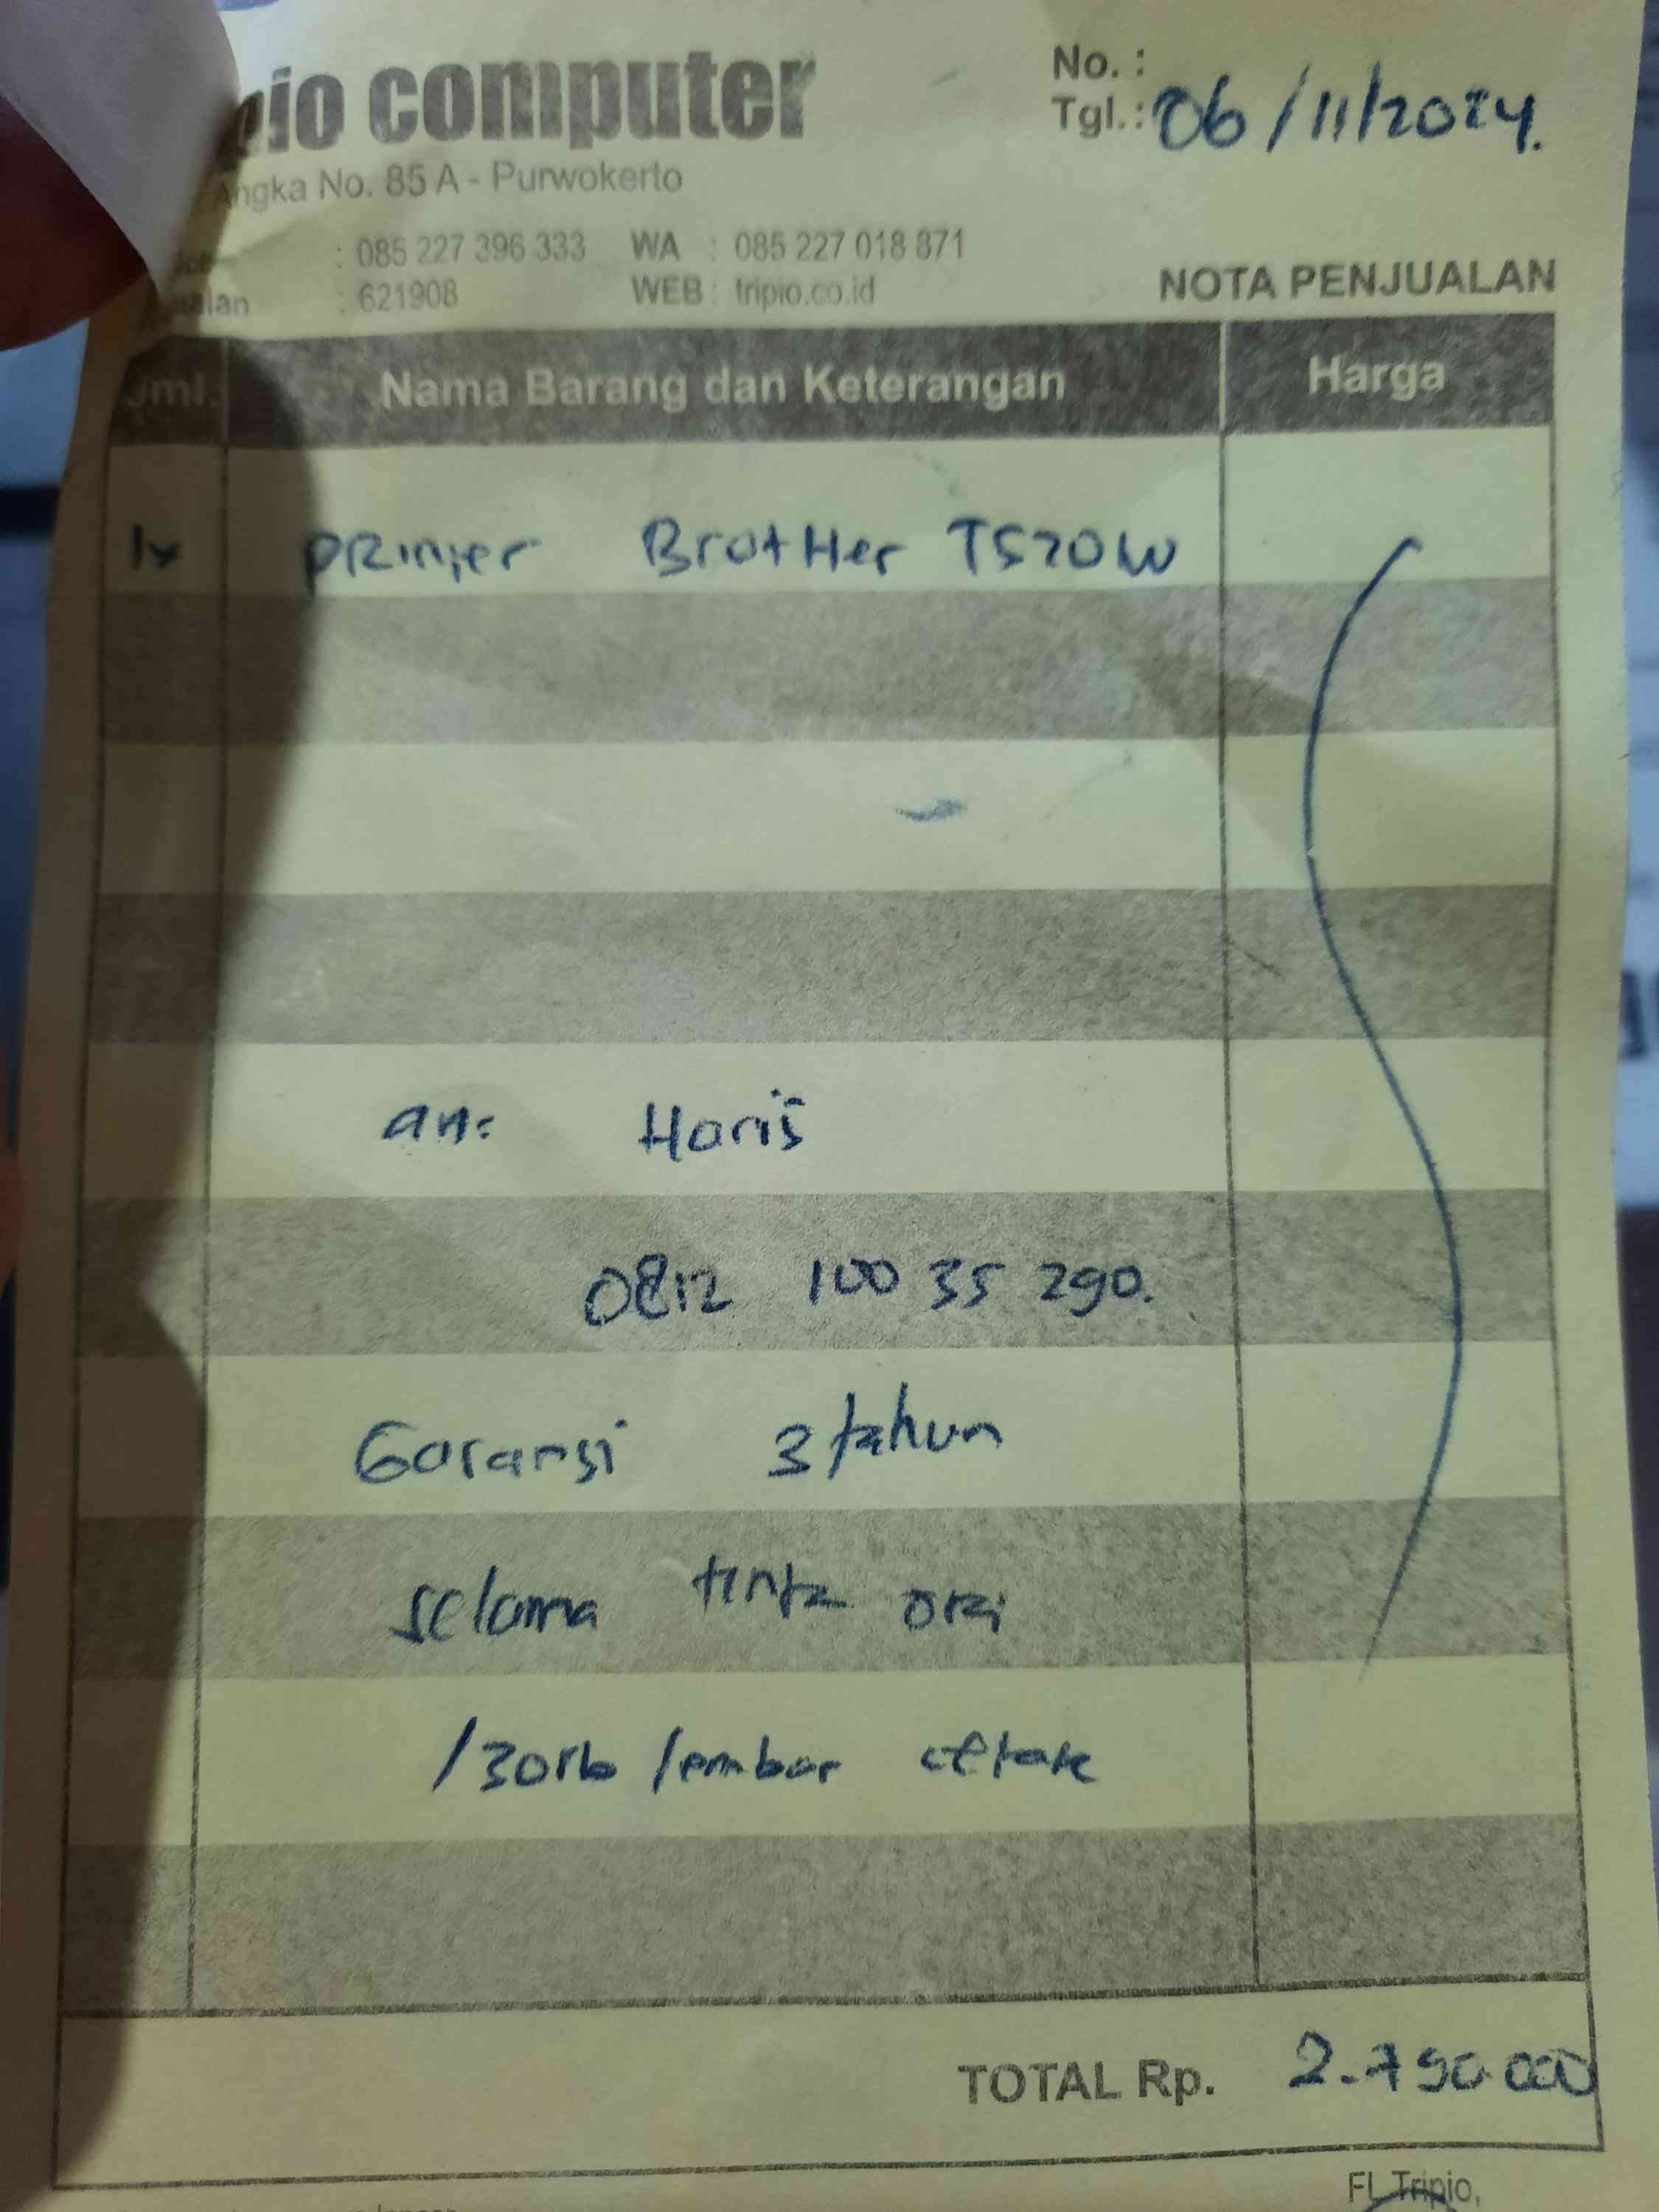 pio computer
No. :
Tgl.: 06/11/2024.
Angka No. 85 A - Purwokerto
: 085 227 396 333 WA : 085 227 018 871
: 621908 WEB : tripio.co.id
NOTA PENJUALAN
Jml. Nama Barang dan Keterangan Harga
1x PRinter BrotHer T520W
an: Haris
0812 100 35 290.
Garansi 3 tahun
selama tinta ori
/30rb lembar cetak
TOTAL Rp. 2.790.000
FL Tripio,